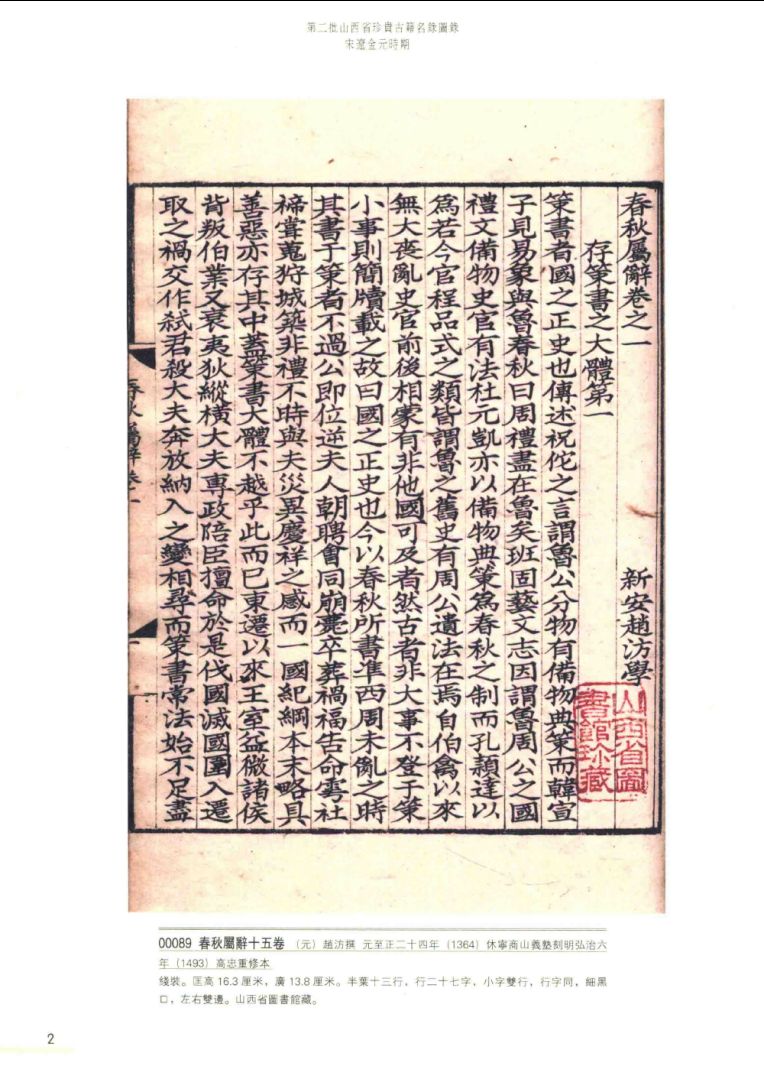 第二批山西省珍貴古籍名錄圖錄
宋遼金元時期
春秋屬辭卷之一
新安趙汸學
存策書之大體第一
策書者國之正史也傳述祝佗之言謂魯公分物有備物典策而韓宣
子見易象與魯春秋曰周禮盡在魯矣班固藝文志因謂魯周公之國
禮文備物史官有法杜元凱亦以備物典策爲春秋之制而孔穎達以
爲若今官程品式之類皆謂魯之舊史有周公遺法在焉自伯禽以來
無大喪亂史官前後相蒙有非他國可及者然古者非大事不登于策
小事則簡牘載之故曰國之正史也今以春秋所書準西周未亂之時
其書于策者不過公即位逆夫人朝聘會同崩薨卒葬禍福告命雩社
禘嘗蒐狩城築非禮不時與夫災異慶祥之感而一國紀綱本末略具
善惡亦存其中蓋策書大體不越乎此而已東遷以來王室益微諸侯
背叛伯業又衰夷狄縱橫大夫專政陪臣擅命於是伐國滅國圍入遷
取之禍交作弒君殺大夫奔放納入之變相尋而策書常法始不足盡
春秋屬辭卷一
山西省圖書館珍藏
00089 春秋屬辭十五卷 （元）趙汸撰 元至正二十四年（1364）休寧商山義塾刻明弘治六
年（1493）高忠重修本
綫裝。匡高 16.3 厘米，廣 13.8 厘米。半葉十三行，行二十七字，小字雙行，行字同，細黑
口，左右雙邊。山西省圖書館藏。
2